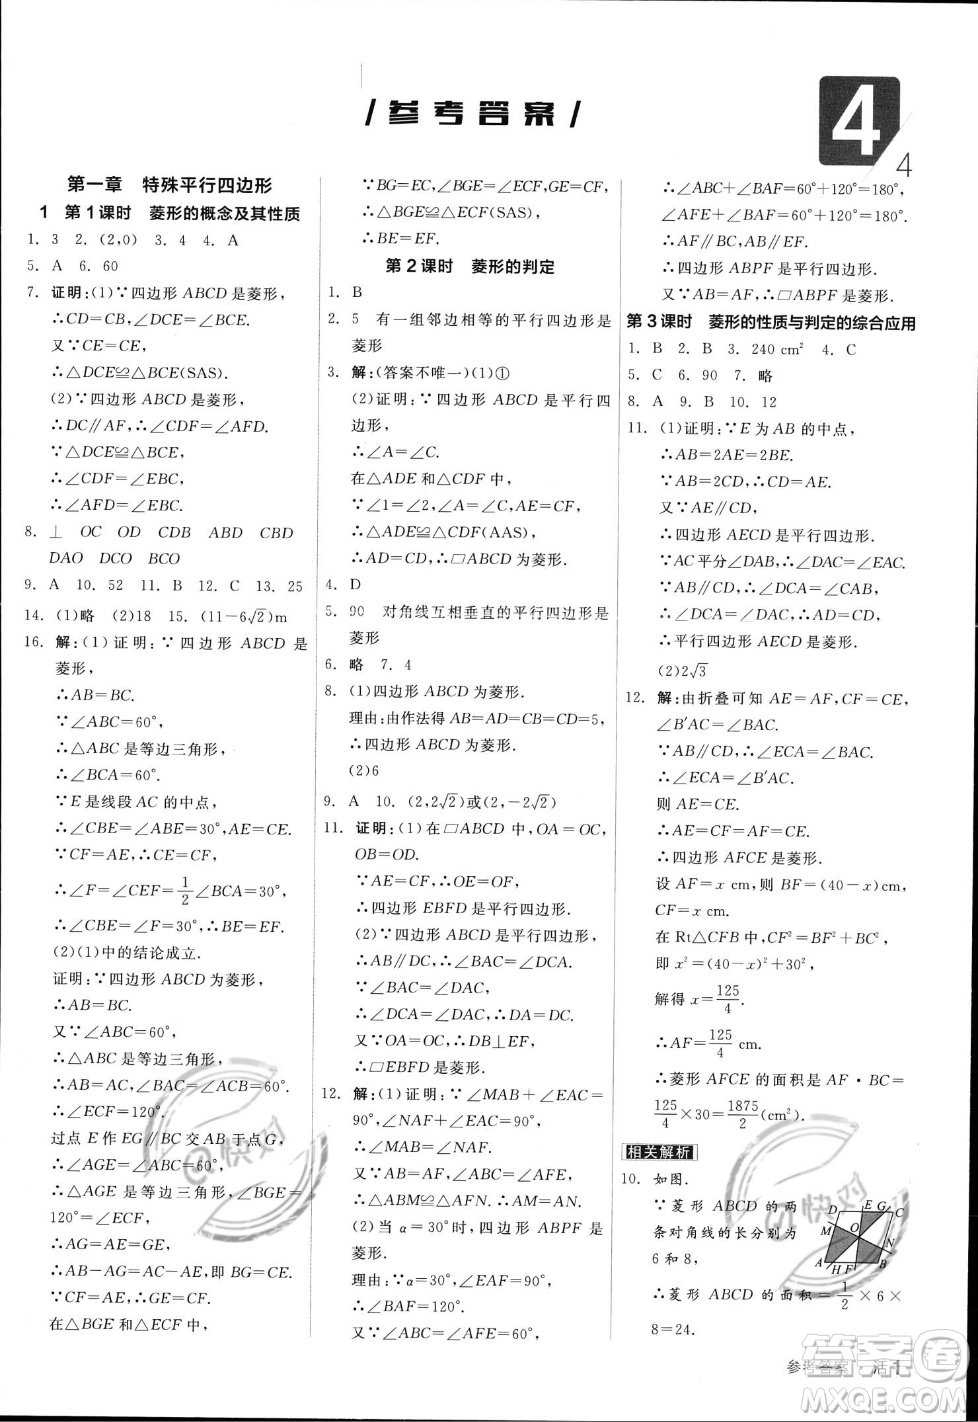 参考答案
4
4
第一章 特殊平行四边形
1 第1课时 菱形的概念及其性质
1. 3 2. (2,0) 3. 4 4. A
5. A 6. 60
7. 证明:(1)∵四边形 ABCD 是菱形,
∴CD=CB,∠DCE=∠BCE.
又∵CE=CE,
∴△DCE≌△BCE(SAS).
(2)∵四边形 ABCD 是菱形,
∴DC∥AF,∴∠CDF=∠AFD.
∵△DCE≌△BCE,
∴∠CDF=∠EBC,
∴∠AFD=∠EBC.
8. ⊥ OC OD CDB ABD CBD
DAO DCO BCO
9. A 10. 52 11. B 12. C 13. 25
14. (1)略 (2)18 15. (11-6√2)m
16. 解:(1)证明:∵四边形 ABCD 是
菱形,
∴AB=BC.
∵∠ABC=60°,
∴△ABC 是等边三角形,
∴∠BCA=60°.
∵E 是线段 AC 的中点,
∴∠CBE=∠ABE=30°,AE=CE.
∵CF=AE,∴CE=CF,
∴∠F=∠CEF=1/2∠BCA=30°,
∴∠CBE=∠F=30°,∴BE=EF.
(2)(1)中的结论成立.
证明:∵四边形 ABCD 为菱形,
∴AB=BC.
又∵∠ABC=60°,
∴△ABC 是等边三角形,
∴AB=AC,∠ACB=60°,
∴∠ECF=120°.
过点 E 作 EG∥BC 交 AB 于点 G,
∴∠AGE=∠ABC=60°,
∴△AGE 是等边三角形,∠BGE=
120°=∠ECF,
∴AG=AE=GE,
∴AB-AG=AC-AE,即 BG=CE.
∵CF=AE,∴GE=CF.
在△BGE 和△ECF 中,
∵BG=EC,∠BGE=∠ECF,GE=CF,
∴△BGE≌△ECF(SAS),
∴BE=EF.
第2课时 菱形的判定
1. B
2. 5 有一组邻边相等的平行四边形是
菱形
3. 解:(答案不唯一)(1)①
(2)证明:∵四边形 ABCD 是平行四
边形,
∴∠A=∠C.
在△ADE 和△CDF 中,
∵∠1=∠2,∠A=∠C,AE=CF,
∴△ADE≌△CDF(AAS),
∴AD=CD,∴□ABCD 为菱形.
4. D
5. 90 对角线互相垂直的平行四边形是
菱形
6. 略 7. 4
8. (1)四边形 ABCD 为菱形.
理由:由作法得 AB=AD=CB=CD=5,
∴四边形 ABCD 为菱形.
(2)6
9. A 10. (2,2√2)或(2,-2√2)
11. 证明:(1)在□ABCD 中,OA=OC,
OB=OD.
∵AE=CF,∴OE=OF,
∴四边形 EBFD 是平行四边形.
(2)∵四边形 ABCD 是平行四边形,
∴AB∥DC,∴∠BAC=∠DCA.
∵∠BAC=∠DAC,
∴∠DCA=∠DAC,∴DA=DC.
又∵OA=OC,∴DB⊥EF,
∴□EBFD 是菱形.
12. 解:(1)证明:∵∠MAB+∠EAC=
90°,∠NAF+∠EAC=90°,
∴∠MAB=∠NAF.
∵∠B=∠F=60°,AB=AF,
∴△ABM≌△AFN,
∴AM=AN.
(2)当 α=30°时,四边形 ABPF 是
菱形.
理由:∵α=30°,∠EAF=90°,
∴∠BAF=120°.
又∵∠B=∠AFE=60°,
∴∠ABC+∠BAF=60°+120°=180°,
∠AFE+∠BAF=60°+120°=180°,
∴AF∥BC,AB∥EF,
∴四边形 ABPF 是平行四边形.
又∵AB=AF,∴□ABPF 是菱形.
第3课时 菱形的性质与判定的综合应用
1. B 2. B 3. 240 cm² 4. C
5. C 6. 90 7. 略
8. A 9. B 10. 12
11. (1)证明:∵E 为 AB 的中点,
∴AB=2AE=2BE.
∵AB=2CD,∴CD=AE.
又∵AE∥CD,
∴四边形 AECD 是平行四边形.
∵AC平分∠DAB,∴∠DAC=∠EAC.
∵AB∥CD,∴∠DCA=∠EAC,
∴∠DCA=∠DAC,∴AD=CD,
∴平行四边形 AECD 是菱形.
(2)2√3
12. 解:由折叠可知 AE=AF,CF=CE,
∠B′AC=∠BAC.
∵AB∥CD,∴∠ECA=∠BAC,
∴∠ECA=∠B′AC,
则 AE=CE.
∴AE=CF=AF=CE.
∴四边形 AFCE 是菱形.
设 AF=x cm,则 BF=(40-x)cm,
CF=x cm.
在 Rt△CFB 中,CF²=BF²+BC²,
即 x²=(40-x)²+30²,
解得 x=125/4.
∴AF=125/4 cm.
∴菱形 AFCE 的面积是 AF·BC=
125/4×30=1875/2(cm²).
相关解析
10. 如图.
∵菱形 ABCD 的两
条对角线的长分别为
6 和 8,
∴菱形 ABCD 的面积=1/2×6×
8=24.
D E G C
M O N
A H F B
参考答案 活 1
答案圈
MXQE.COM
@快对
@快对